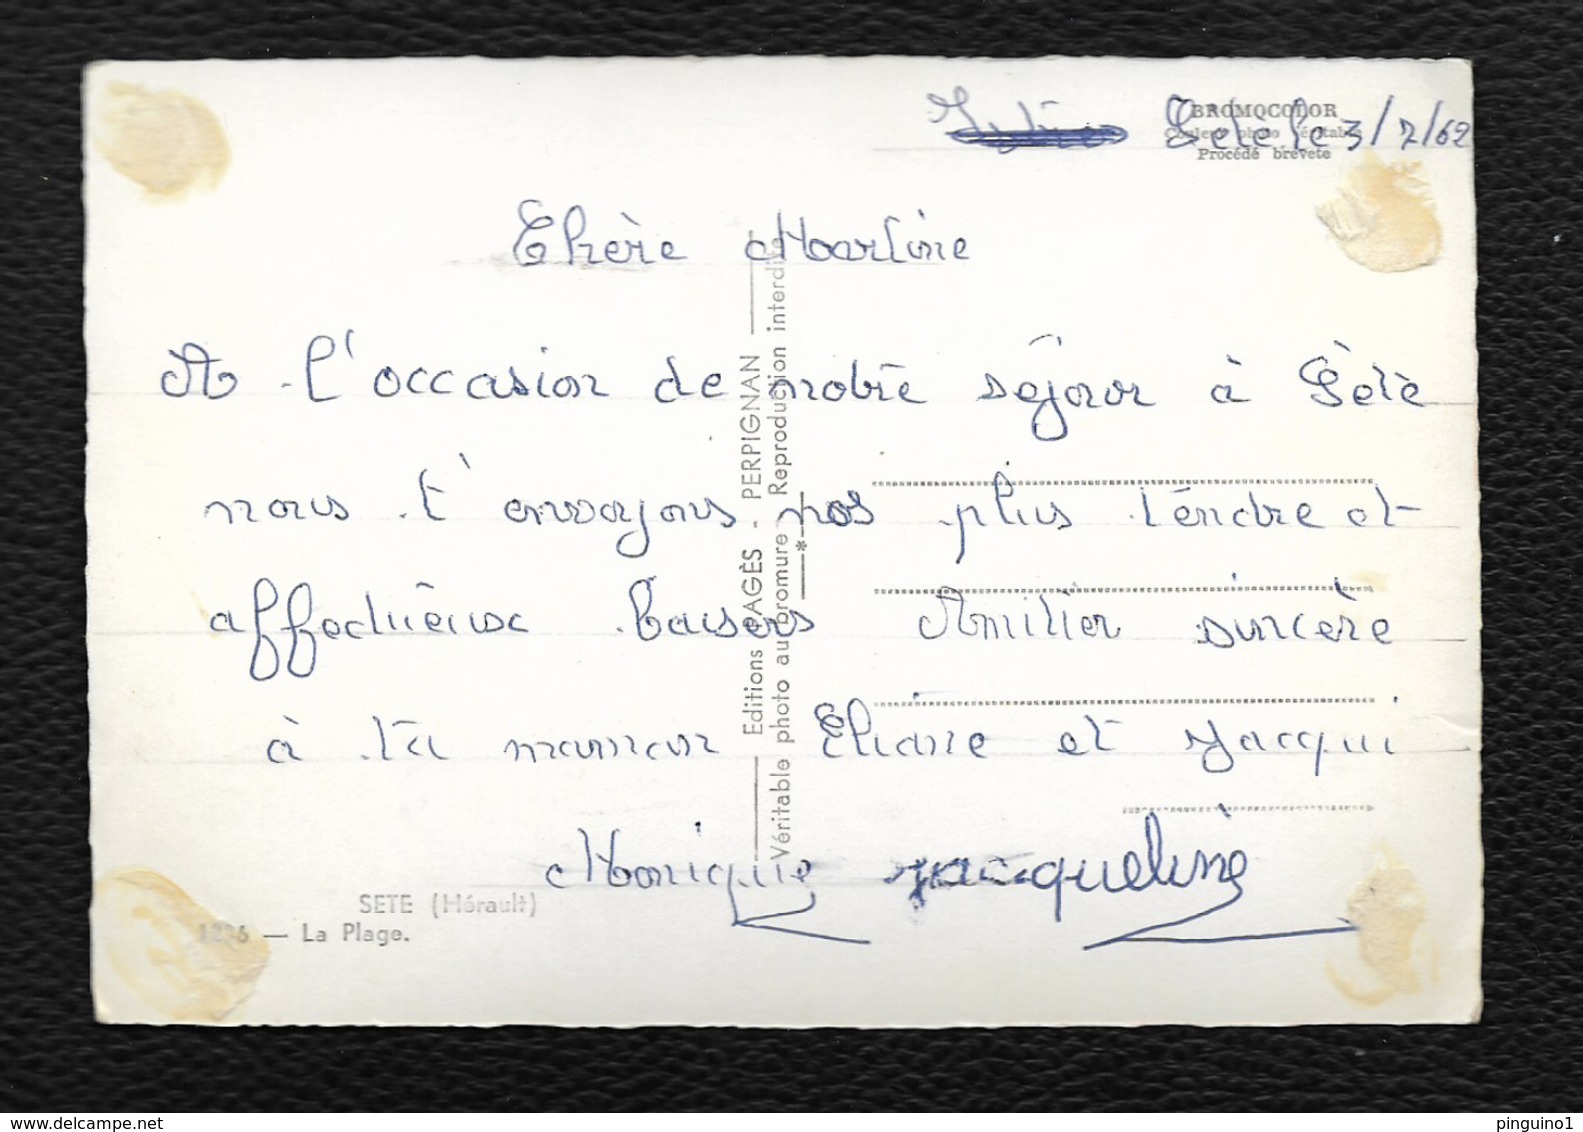 BROMOCOLOR
Couleurs photo véritable
Procédé breveté
Sète le 3/7/62
Chère Martine
A l'occasion de notre séjour à Sètè
nous t'envoyons nos plus tendre et
affectueuse baisers Amitier sincère
à ta maman Eliane et Jacqui
Monique Jacqueline
Editions PAGÈS - PERPIGNAN
Véritable photo au bromure - Reproduction interdite
SETE (Hérault)
1236 — La Plage.
pinguino1